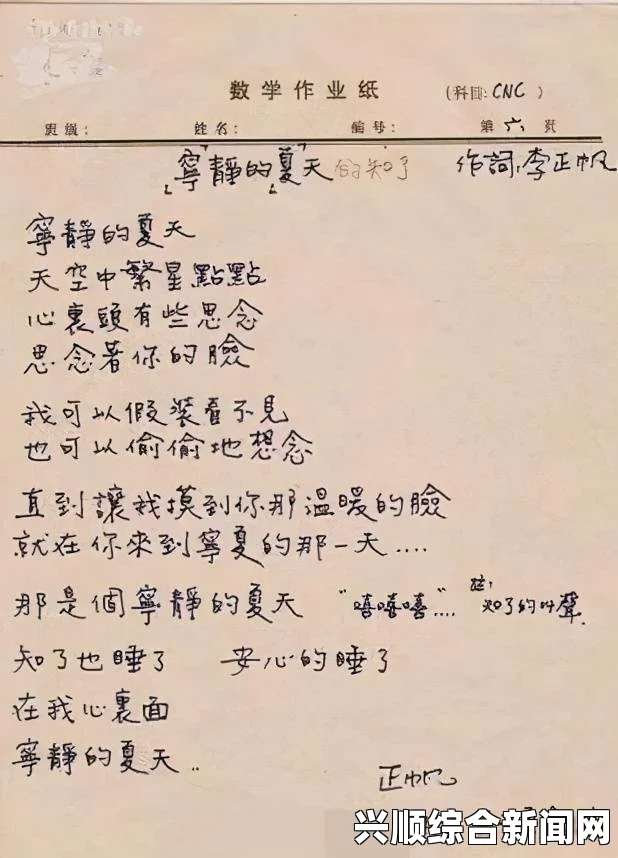 数学作业纸 (科目: CNC )
班级: 姓名: 编号: 第 六 页
「"寧靜的"夏」天的知了 作詞:李正帆
寧靜的夏天
天空中繁星點點
心裏頭有些思念
思念著你的臉
我可以假裝看不見
也可以偷偷地想念
直到讓我摸到你那溫暖的臉
就在你來到寧夏的那一天....
那是個寧靜的夏天 "嘻嘻嘻"... 註: 知了的叫聲
知了也睡了 安心的睡了
在我心裏面
寧靜的夏天..
正帆
兴顺综合新闻网